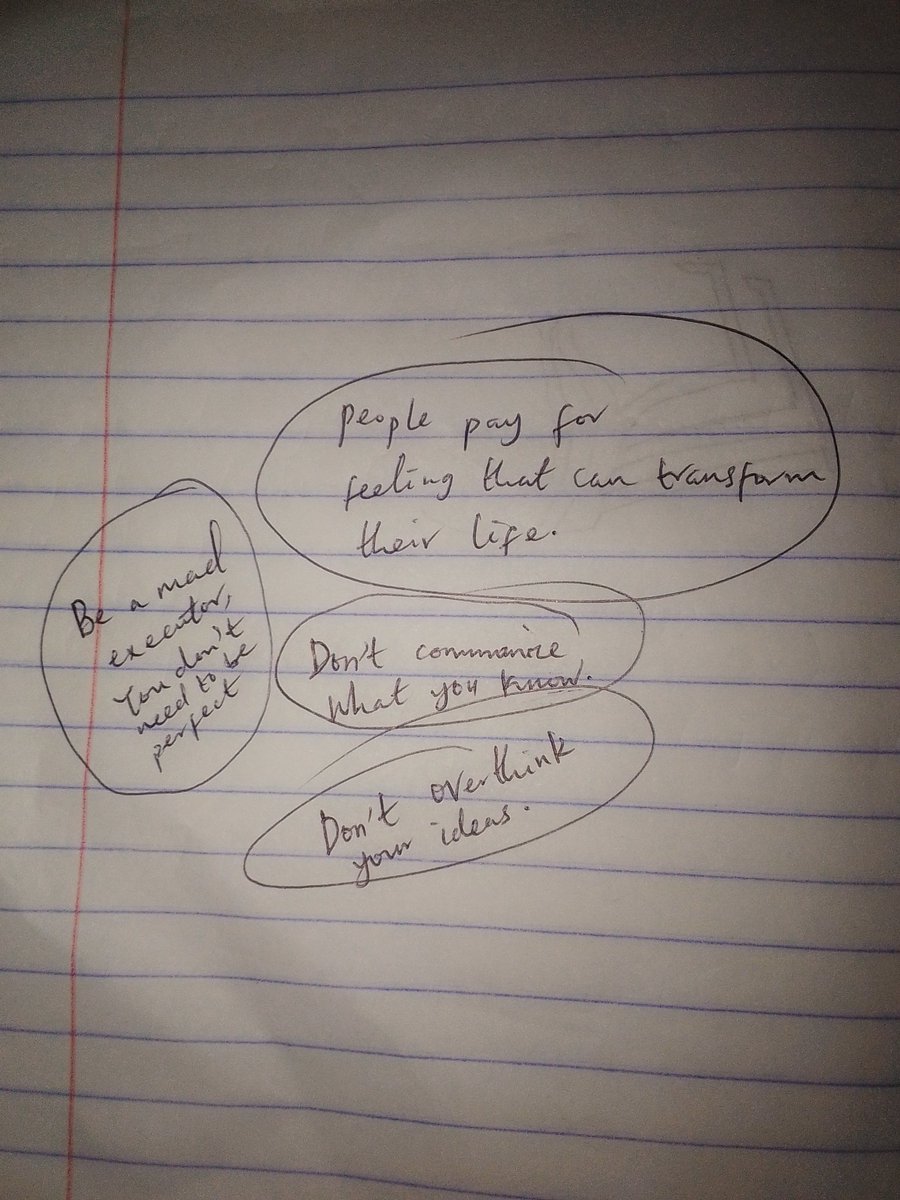 people pay for
feeling that can transform
their life.
Be a mad
executor,
You don't
need to be
perfect
Don't
what you know.
Don't overthink
your ideas.